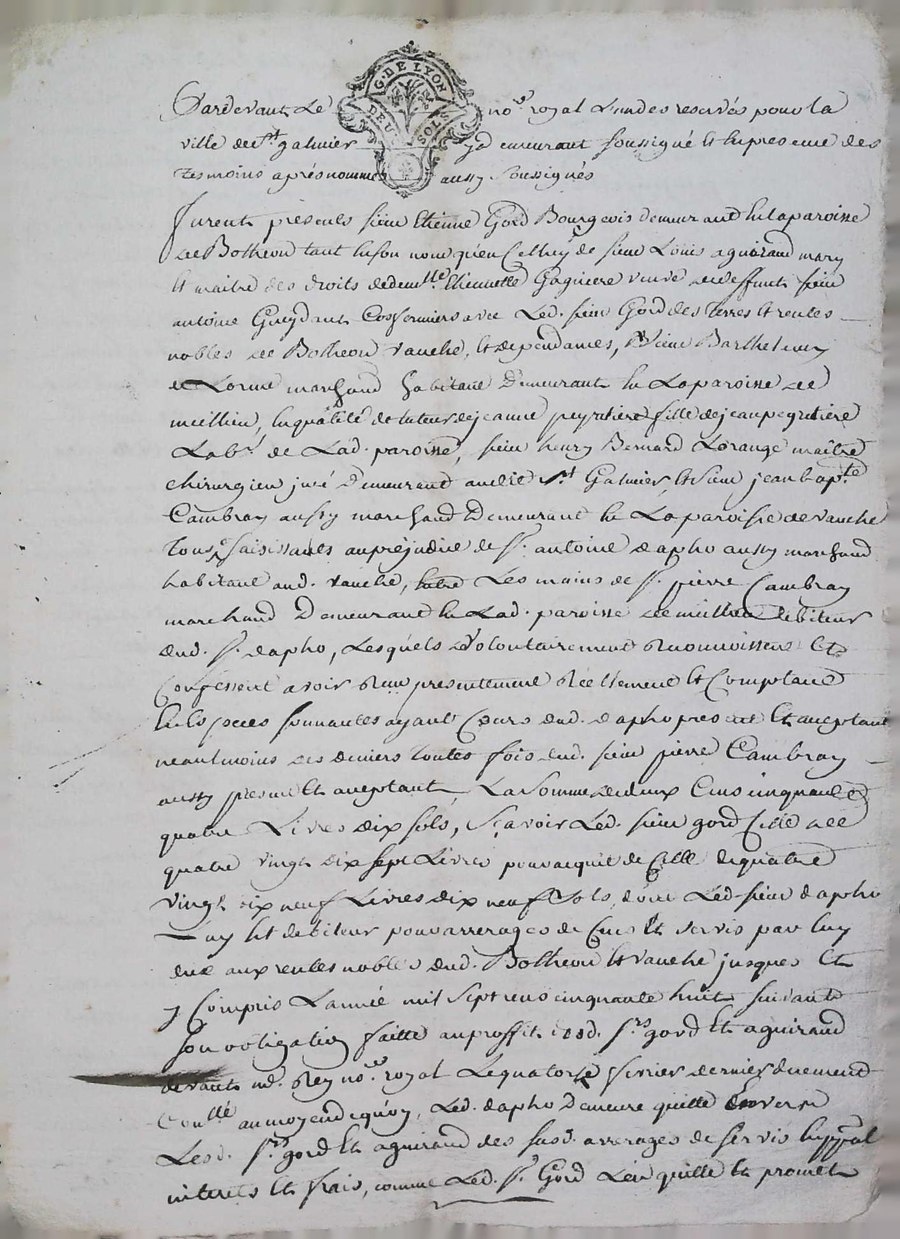 G. DE LYON
DEUX SOLS
Pardevant Le no.re royal L'un des reservés pour la
ville de St. galmier y demeurant soussigné Et En presence des
tesmoins aprés nommés aussy soussignés
furent présents sieur Etienne Gord Bourgeois demeurant En la paroisse
de Botheon tant En son nom qu'en Celluy de sieur Louis aguiraud mary
Et maitre des droits de dem.lle Etiennette Gagniere veuve de deffunt sieur
antoine Gueydant Cofermiers avec Led. sieur Gord des terres Et rentes
nobles de Botheon vauche, Et dependances, sieur Barthelemy
de Lorme marchand habitant Demeurant En La paroisse de
meillieu, En qualité de tuteur de jeanne peyretiere fille de jean peyretiere
Lab.r de Lad. paroisse, sieur henry Bernard Lorange maitre
chirurgien juré Demeurant audit St. Galmier, Et sieur jean bap.te
Cambray aussy marchand Demeurant En La paroisse de vauche
tous saisissants au préjudice de Sr. antoine dapho aussy marchand
habitant aud. vauche, Entre Les mains de Sr. pierre Cambray
marchand Demeurant En Lad. paroisse de meillieu debiteur
dud. Sr. dapho, Lesquels volontairement Reconnoissent Et
Confessent avoir Reçu presentement Réellement Et Comptant
En Especes sonnantes ayant Cours dud. dapho present Et acceptant
neantmoins des deniers toutes fois dud. sieur pierre Cambray
aussy present Et acceptant La somme de deux Cens cinquante
quatre Livres dix sols, Sçavoir Led. sieur gord Celle de
quatre vingt dix sept Livres pour acquit de Celle de quatre
vingt dix neuf Livres dix neuf sols, dont Led. sieur dapho
Luy Est debiteur pour arrerages de Cens Et servis par luy
dus aux rentes nobles dud. Botheon Et vauche jusques Et
y Compris L'année mil sept cens cinquante huit suivant
son obligation faitte au proffit desd. Srs. gord Et aguiraud
devant me. Rey no.re royal Le quatorze fevrier dernier duement
Con.llé au moyen de quoy, Led. dapho Demeure quitte Envers
Lesd. Srs. gord Et aguiraud des susd. arrerages de servis En ppal
interets Et frais, comme Led. Sr. Gord L'en quitte Et promet